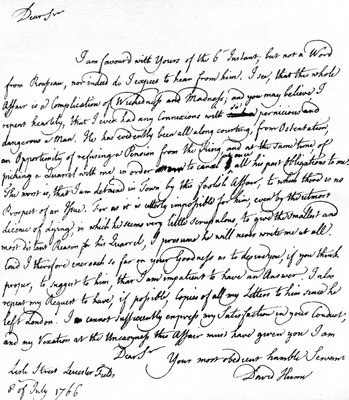 Dear Sir
I am favour'd with Yours of the 6th Instant; but not a Word
from Rousseau, nor indeed do I expect to hear from him. I see, that this whole
Affair is a Complication of Wickedness and Madness; and you may believe I
repent heartily, that I ever had any Connexions with so pernicious and
dangerous a Man. He has evidently been all along courting, from Ostentation,
an Opportunity of refusing a Pension from the King, and at the same time of
picking a Quarrel with me, in order to cancel at once all his past Obligations to me.
The worst is, that I am detained in Town by this foolish Affair, to which there is no
Prospect of an Issue. For as it is utterly impossible for him, even by the utmost
Licence of lying, in which he seems very little scrupulous, to give the smallest and
most distant Reason for his Quarrel, I presume he will never write me at all.
Cou'd I therefore encroach so far on your Goodness as to desire you, if you think
proper, to suggest to him, that I am impatient to have an Answer. I also
repeat my Request to have, if possible, Copies of all my Letters to him since he
left London. I cannot sufficiently express my Satisfaction in your Conduct,
and my Vexation at the Uneasyness this Affair must have given you I am
Dear Sir
Your most obedient humble Servant
David Hume
Lisle Street Leicester Fields
8 of July 1766